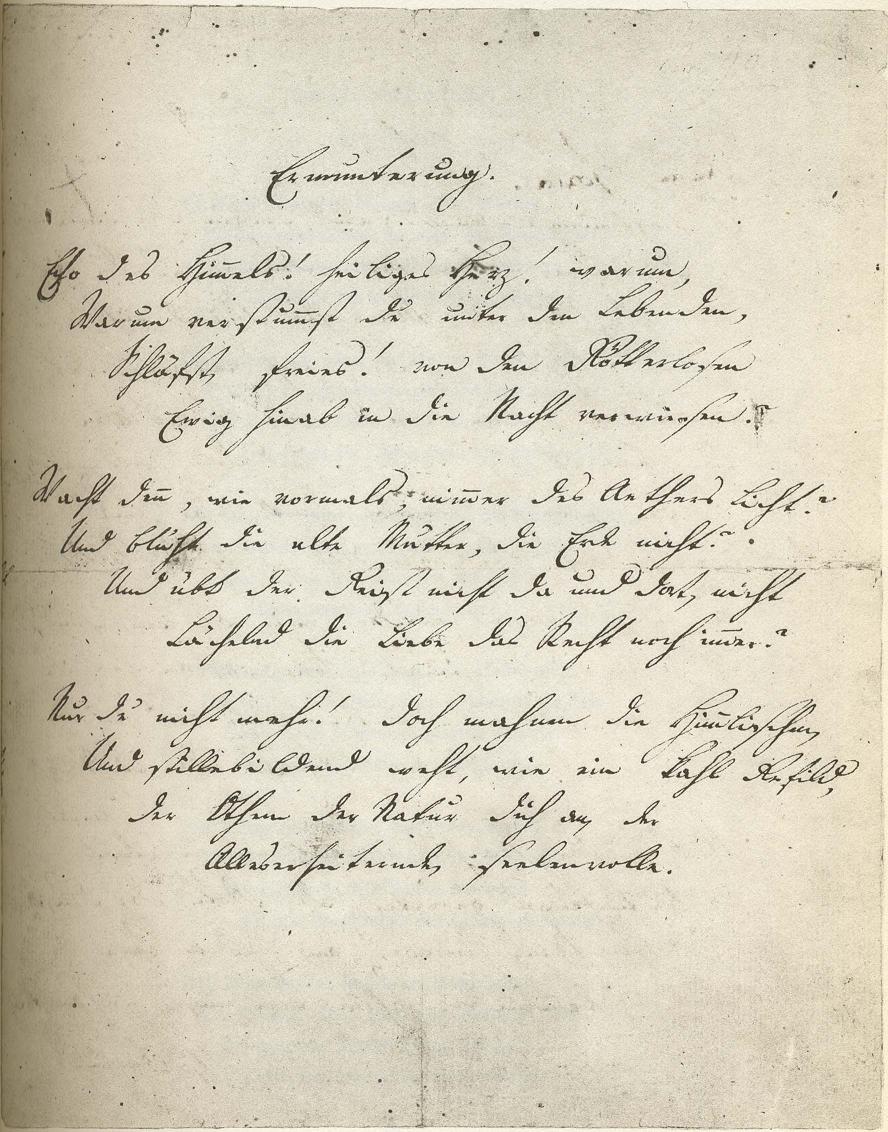 Ermunterung.
Echo des Him̄els! heiliges Herz! warum,
Warum verstum̄st du unter den Lebenden,
Schläfst, freies! von den Götterlosen
Ewig hinab in die Nacht verwiesen?
Wacht den̄, wie vormals, nim̄er des Aethers Licht?
Und blüht die alte Mutter, die Erde nicht?
Und übt der Geist nicht da und dort, nicht
Lächelnd die Liebe das Recht noch im̄er?
Nur du nicht mehr! doch mahnen die Him̄lischen,
Und stillebildend weht, wie ein kahl Gefild,
der Othem der Natur dich an, der
Alleserheiternde, seelenvolle.